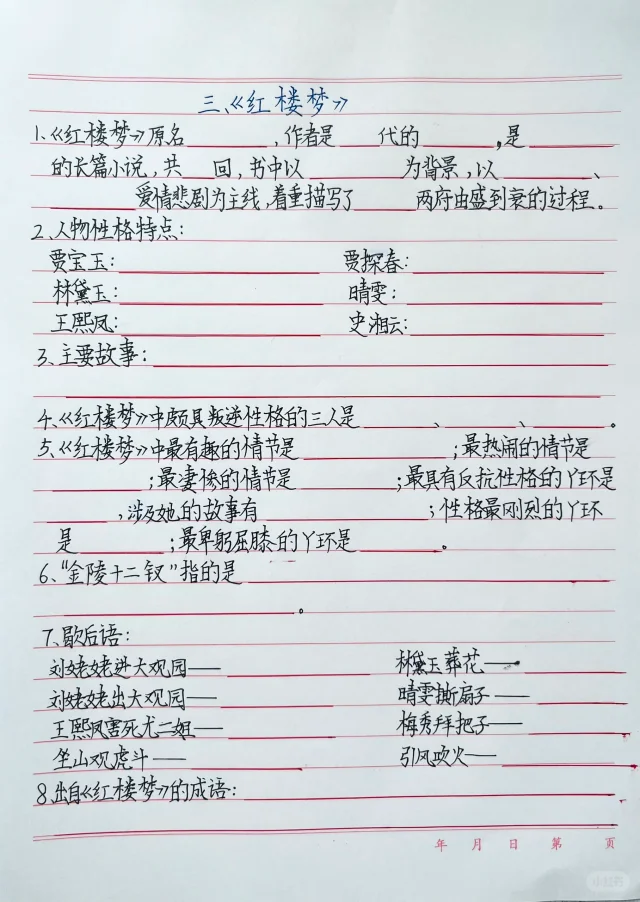 三、《红楼梦》
1、《红楼梦》原名________,作者是____代的______,是________
的长篇小说,共___回,书中以__________为背景,以__________、
________爱情悲剧为主线,着重描写了_____两府由盛到衰的过程。
2、人物性格特点:
贾宝玉:____________________ 贾探春:____________________
林黛玉:____________________ 晴雯:____________________
王熙凤:____________________ 史湘云:____________________
3、主要故事:________________________________________
4、《红楼梦》中颇具叛逆性格的三人是_______、_______、_______。
5、《红楼梦》中最有趣的情节是______________;最热闹的情节是
__________;最凄惨的情节是__________;最具有反抗性格的丫环是
______,涉及她的故事有________________;性格最刚烈的丫环
是________;最卑躬屈膝的丫环是________。
6、“金陵十二钗”指的是________________________________
________________________。
7、歇后语:
刘姥姥进大观园——__________ 林黛玉葬花——__________
刘姥姥出大观园——__________ 晴雯撕扇子——__________
王熙凤害死尤二姐——__________ 梅秀拜把子——__________
坐山观虎斗——__________ 引风吹火——__________
8、出自《红楼梦》的成语:______________________________
年 月 日 第 页
小红书